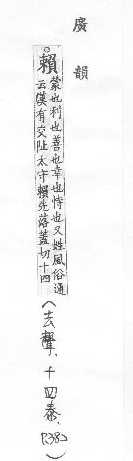 廣韻
賴
蒙也利也善也幸也恃也又姓風俗通
云漢有交阯太守賴先落蓋切十四
(去聲、十四泰、P.382)